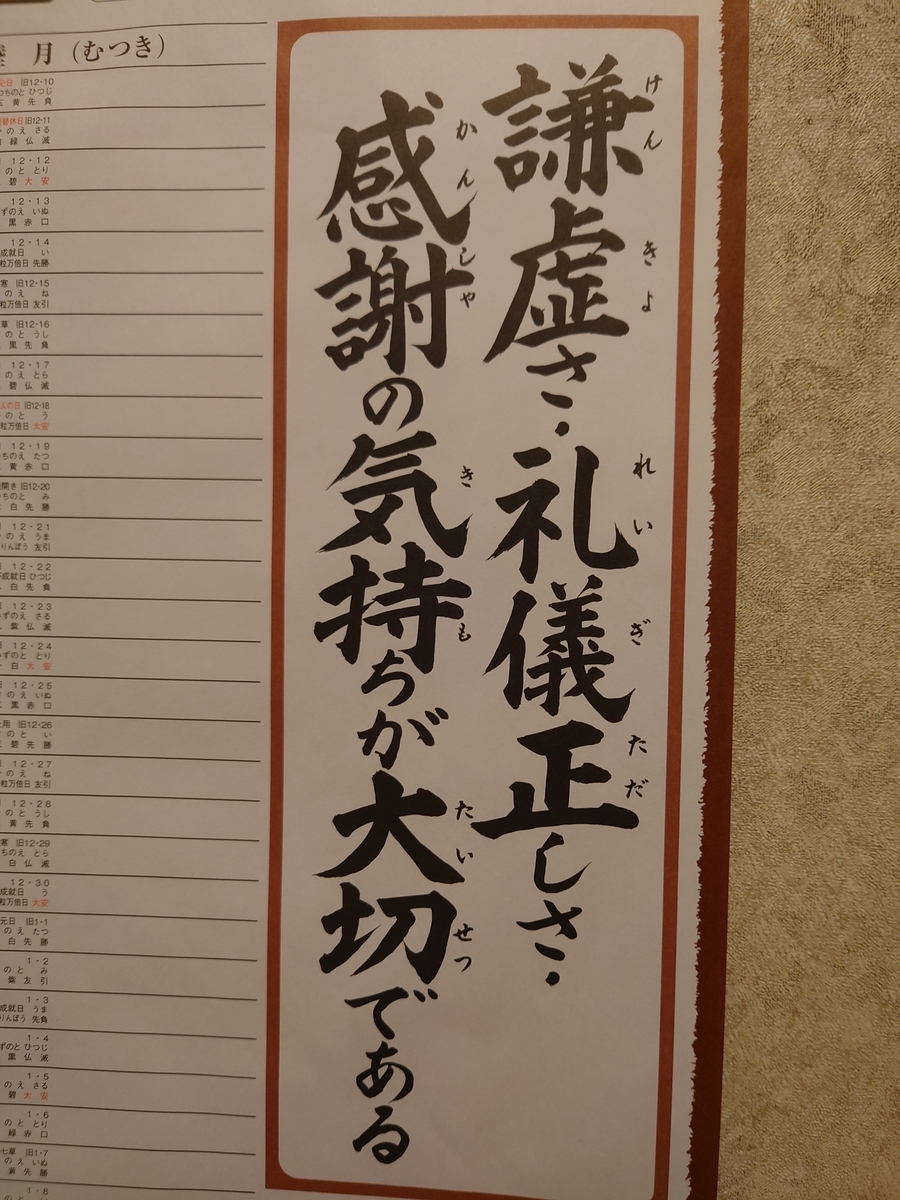 謙虚さ・礼儀正しさ・
感謝の気持ちが大切である
けん
きよ
れい
ぎ
ただ
かん
しや
き
も
たい
せつ
月(むつき)
元日 旧12・10
つちのと ひつじ
黄 先 負
振替休日 旧12・11
のえ さる
緑 仏 滅
12・12
のと とり
碧 大 安
12・13
ずのえ いぬ
黒 赤 口
12・14
成就日 い
粒万倍日 先勝
寒 旧12・15
のえ ね
粒万倍日 友引
草 旧12・16
のと うし
黒 先 負
12・17
のえ とら
碧 仏 滅
人の日 旧12・18
のと う
粒万倍日 大安
12・19
ちのえ たつ
黄 赤 口
開き 旧12・20
ちのと み
白 先 勝
12・21
のえ うま
りんぼう 友引
12・22
不成就日 ひつじ
白 先 負
12・23
ずのえ さる
紫 仏 滅
12・24
ずのと とり
白 大 安
12・25
のえ いぬ
黒 赤 口
用 旧12・26
のと い
碧 先 勝
12・27
のえ ね
粒万倍日 友引
12・28
のと うし
黄 先 負
寒 旧12・29
ちのえ とら
白 仏 滅
12・30
成就日 う
粒万倍日 大安
元日 旧1・1
のえ たつ
白 先 勝
1・2
のと み
紫 友 引
1・3
成就日 うま
りんぼう 先負
1・4
ずのと ひつじ
黒 仏 滅
1・5
のえ さる
碧 大 安
1・6
のと とり
緑 赤 口
七草 旧1・7
のえ いぬ
黄 先 勝
1・8